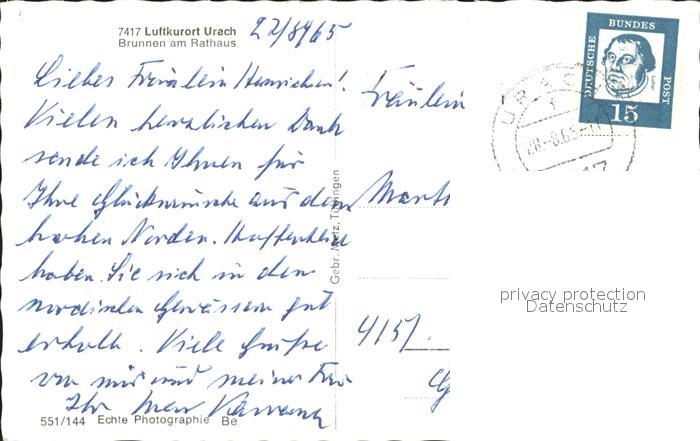 7417 Luftkurort Urach
Brunnen am Rathaus
22/8 1965
Liebes Fräulein
Vielen herzlichen Dank
sende ich Ihnen für
Ihre Glückwünsche aus dem
hohen Norden. Hoffentlich
haben Sie sich in den
nordischen Gewässern gut
erholt. Viele Grüße
von mir und meiner Frau
Ihr
551/144 Echte Photographie Be
Gebr. Metz, Tübingen
Fräulein
415/.
DEUTSCHE BUNDESPOST
Luther
15
URACH
1
28.-8.65-11
privacy protection
Datenschutz